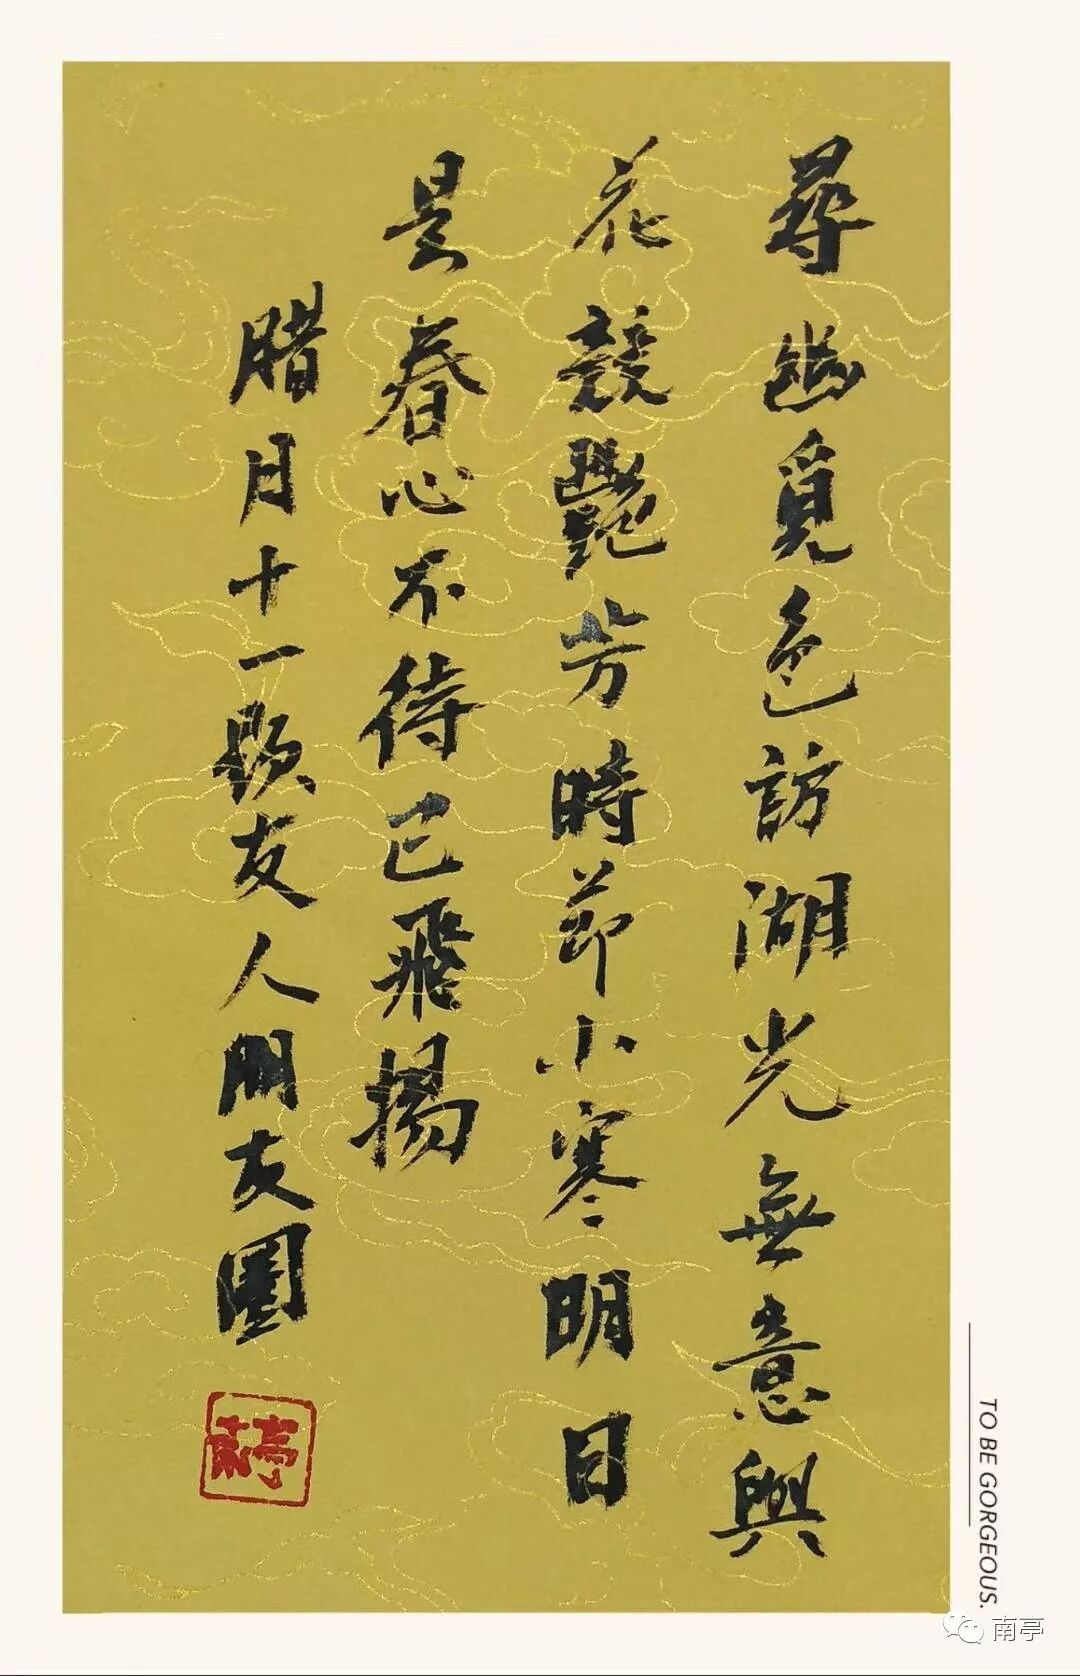 尋幽覓色訪湖光無意與
花競艷芳時節小寒明日
是春心不待已飛揚
腊月十一題友人朋友圈
南亭
TO BE GORGEOUS.
南亭